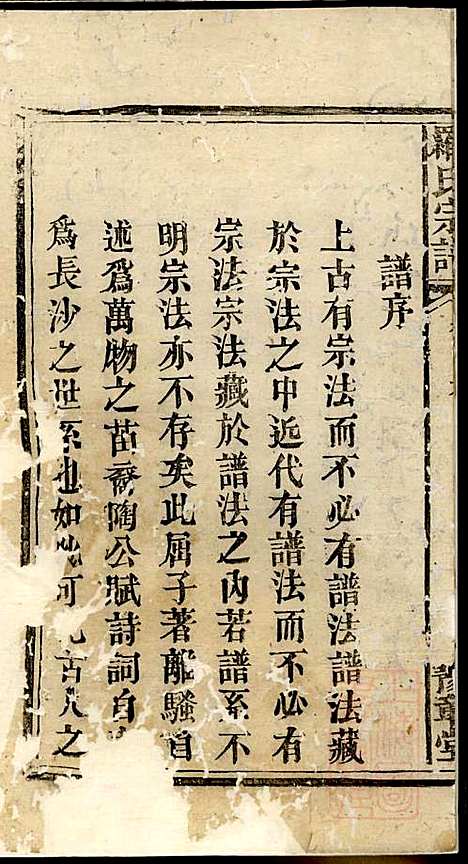 羅氏宗譜
豫章堂
譜序
上古有宗法而不必有譜法譜法藏
於宗法之中近代有譜法而不必有
宗法宗法藏於譜法之內若譜系不
明宗法亦不存矣此屈子著離騷自
述爲萬物之苗裔陶公賦詩詞自
爲長沙之世系也如可古人之